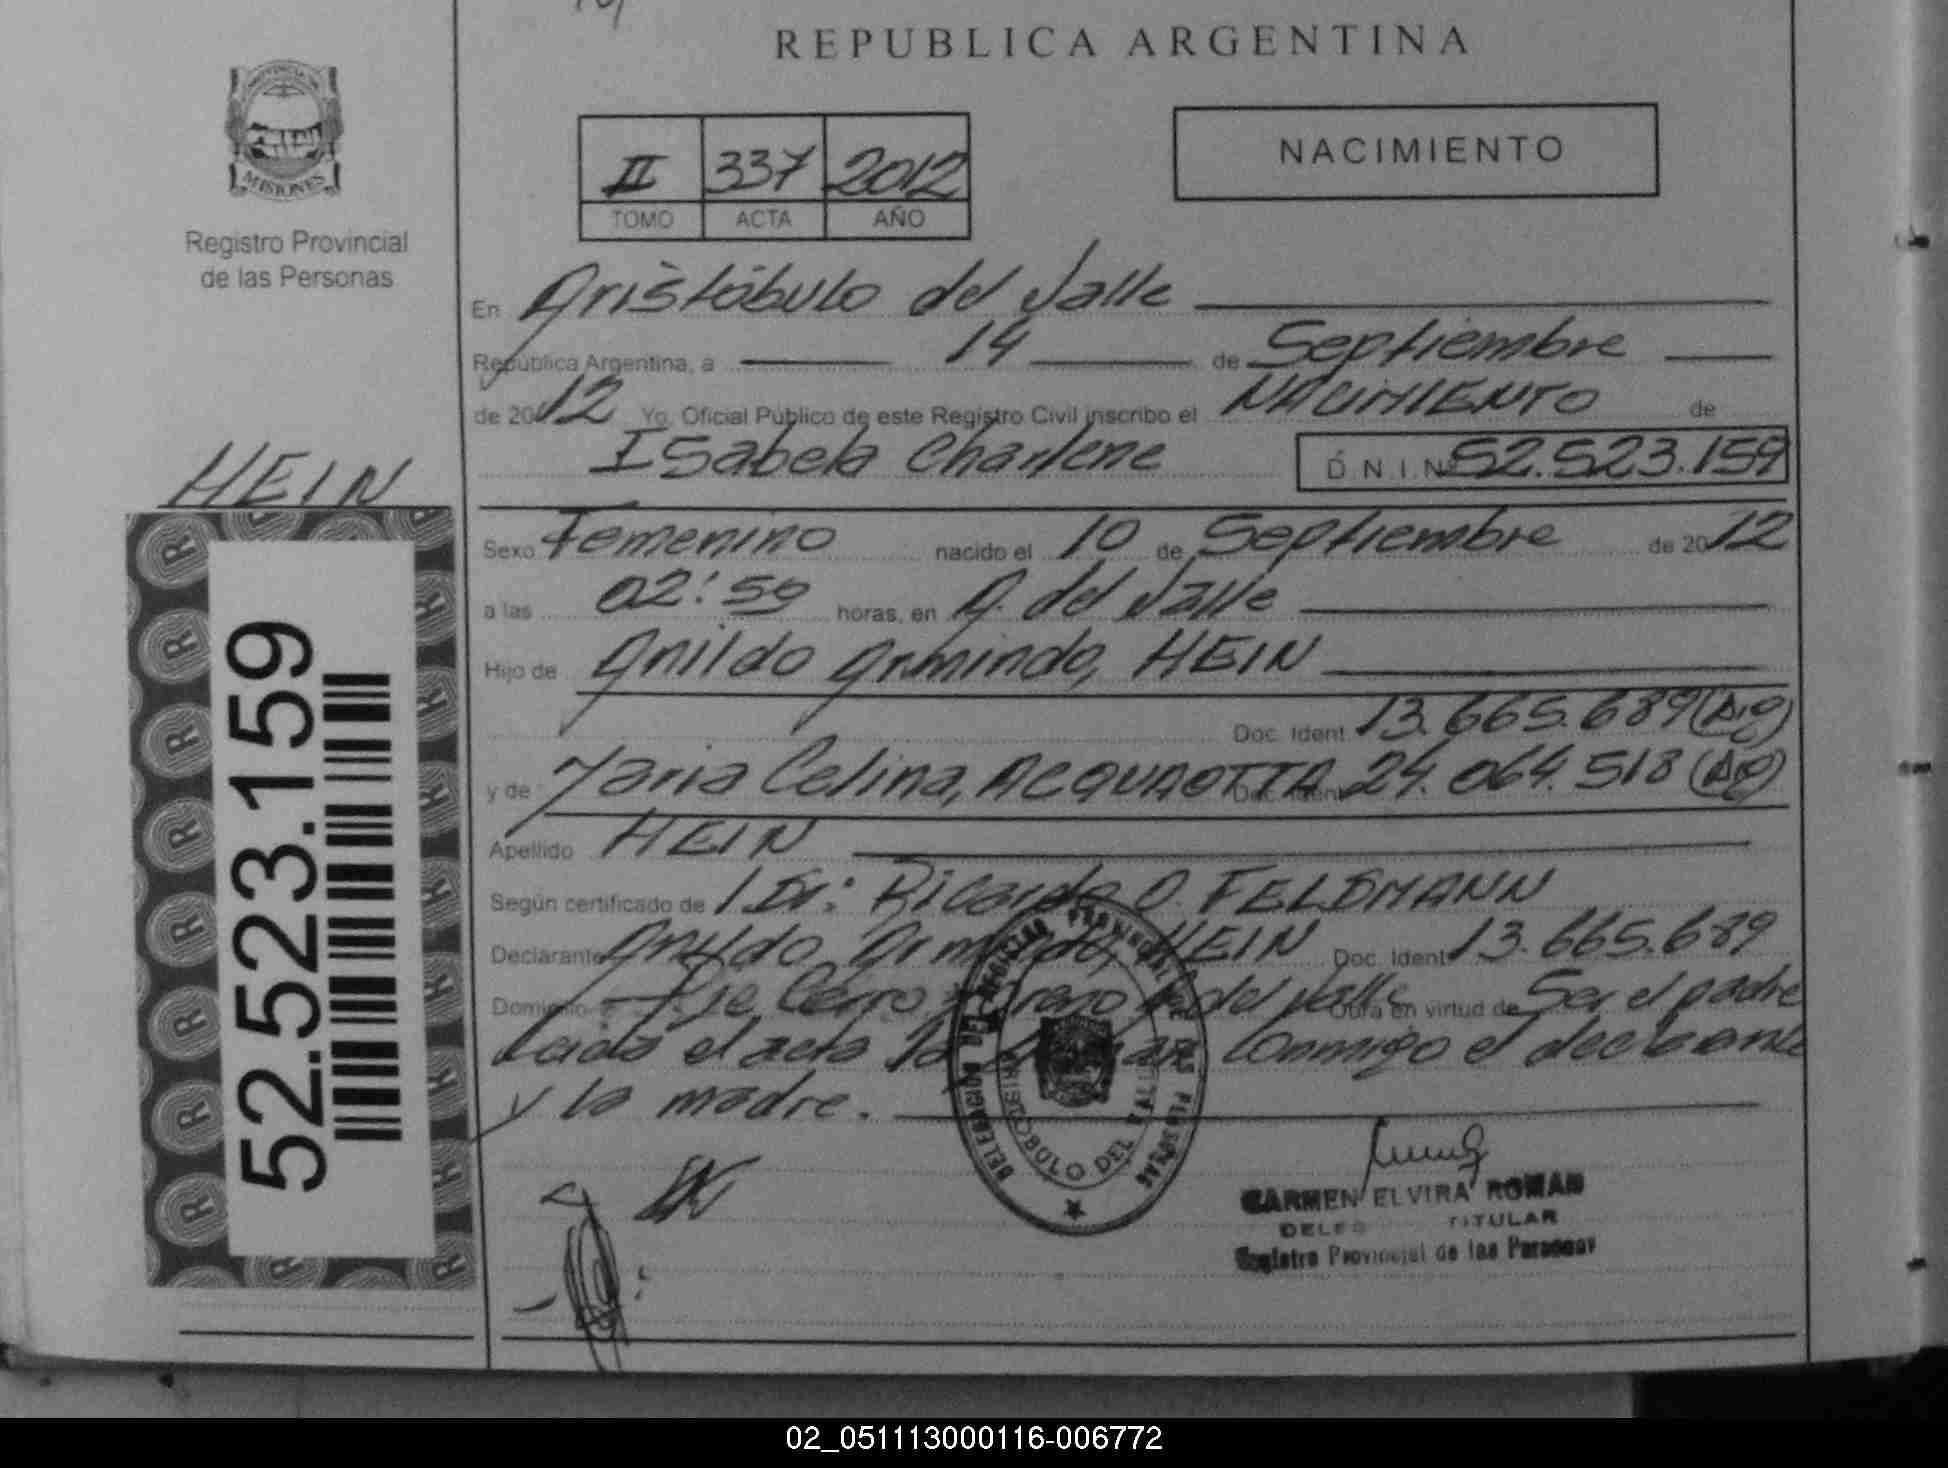 REPUBLICA ARGENTINA
PROVINCIA DE
MISIONES
Registro Provincial
de las Personas
II 337 2012
TOMO ACTA AÑO
NACIMIENTO
En Aristóbulo del Valle
República Argentina, a 14 de Septiembre
de 2012 Yo, Oficial Público de este Registro Civil inscribo el NACIMIENTO de
Isabela Charlene D.N.I.Nº 52.523.159
HEIN
Sexo Femenino nacido el 10 de Septiembre de 2012
a las 02:50 horas, en A. del Valle
Hijo de Anildo Armindo, HEIN
Doc. Ident. 13.665.689 (Arg)
y de Maria Celina, ACQUAOTTA Doc. Ident. 24.064.518 (Arg)
Apellido HEIN
Según certificado de l Dr: Ricardo O. FELDMANN
Declarante Anildo Armindo, HEIN Doc. Ident. 13.665.689
Domicilio Pje Cerro Moreno A. del Valle Obra en virtud de Ser el padre
Leida el acta la firman Conmigo el declarante
y la madre.
52.523.159
DELEGACION REGISTRO PROVINCIAL DE LAS PERSONAS
ARISTOBULO DEL VALLE
CARMEN ELVIRA ROMAN
TITULAR
Registro Provincial de las Personas
02_051113000116-006772